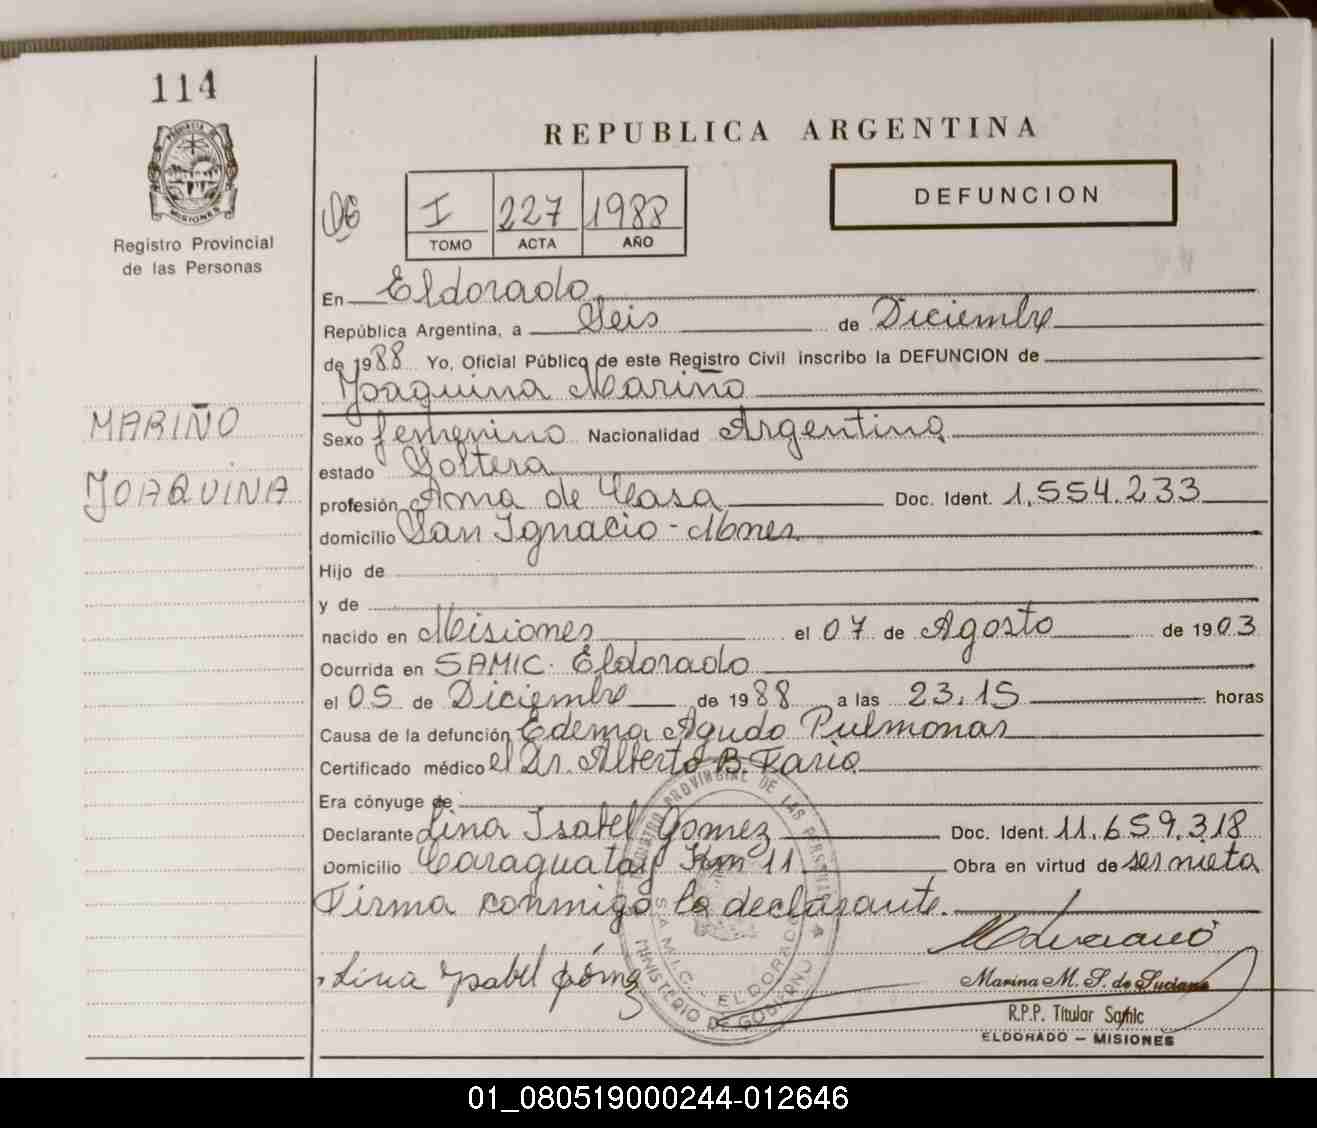 114
PROVINCIA DE
MISIONES
Registro Provincial
de las Personas
REPUBLICA ARGENTINA
DEFUNCION
I 227 1988
TOMO ACTA AÑO
En Eldorado
República Argentina, a Seis de Diciembre
de 1988 Yo, Oficial Público de este Registro Civil inscribo la DEFUNCION de
Joaquina Mariño
MARIÑO
JOAQUINA
Sexo femenino Nacionalidad Argentina
estado Soltera
profesión Ama de Casa Doc. Ident. 1.554.233
domicilio San Ignacio - Mnes
Hijo de
y de
nacido en Misiones el 07 de Agosto de 1903
Ocurrida en SAMIC. Eldorado
el 05 de Diciembre de 1988 a las 23.15 horas
Causa de la defunción Edema Agudo Pulmonar
Certificado médico el Dr. Alberto B. Fario
Era cónyuge de
Declarante Lina Isabel Gomez Doc. Ident. 11.659.318
Domicilio Caraguatay Km 11 Obra en virtud de ser nieta
Firma conmigo la declarante.
Lina Ysabel Gómez
Marina M. S. de Luciano
R.P.P. Titular Samic
ELDORADO - MISIONES
REGISTRO PROVINCIAL DE LAS PERSONAS
S.A.M.I.C. - ELDORADO
MINISTERIO DE GOBIERNO
01_080519000244-012646